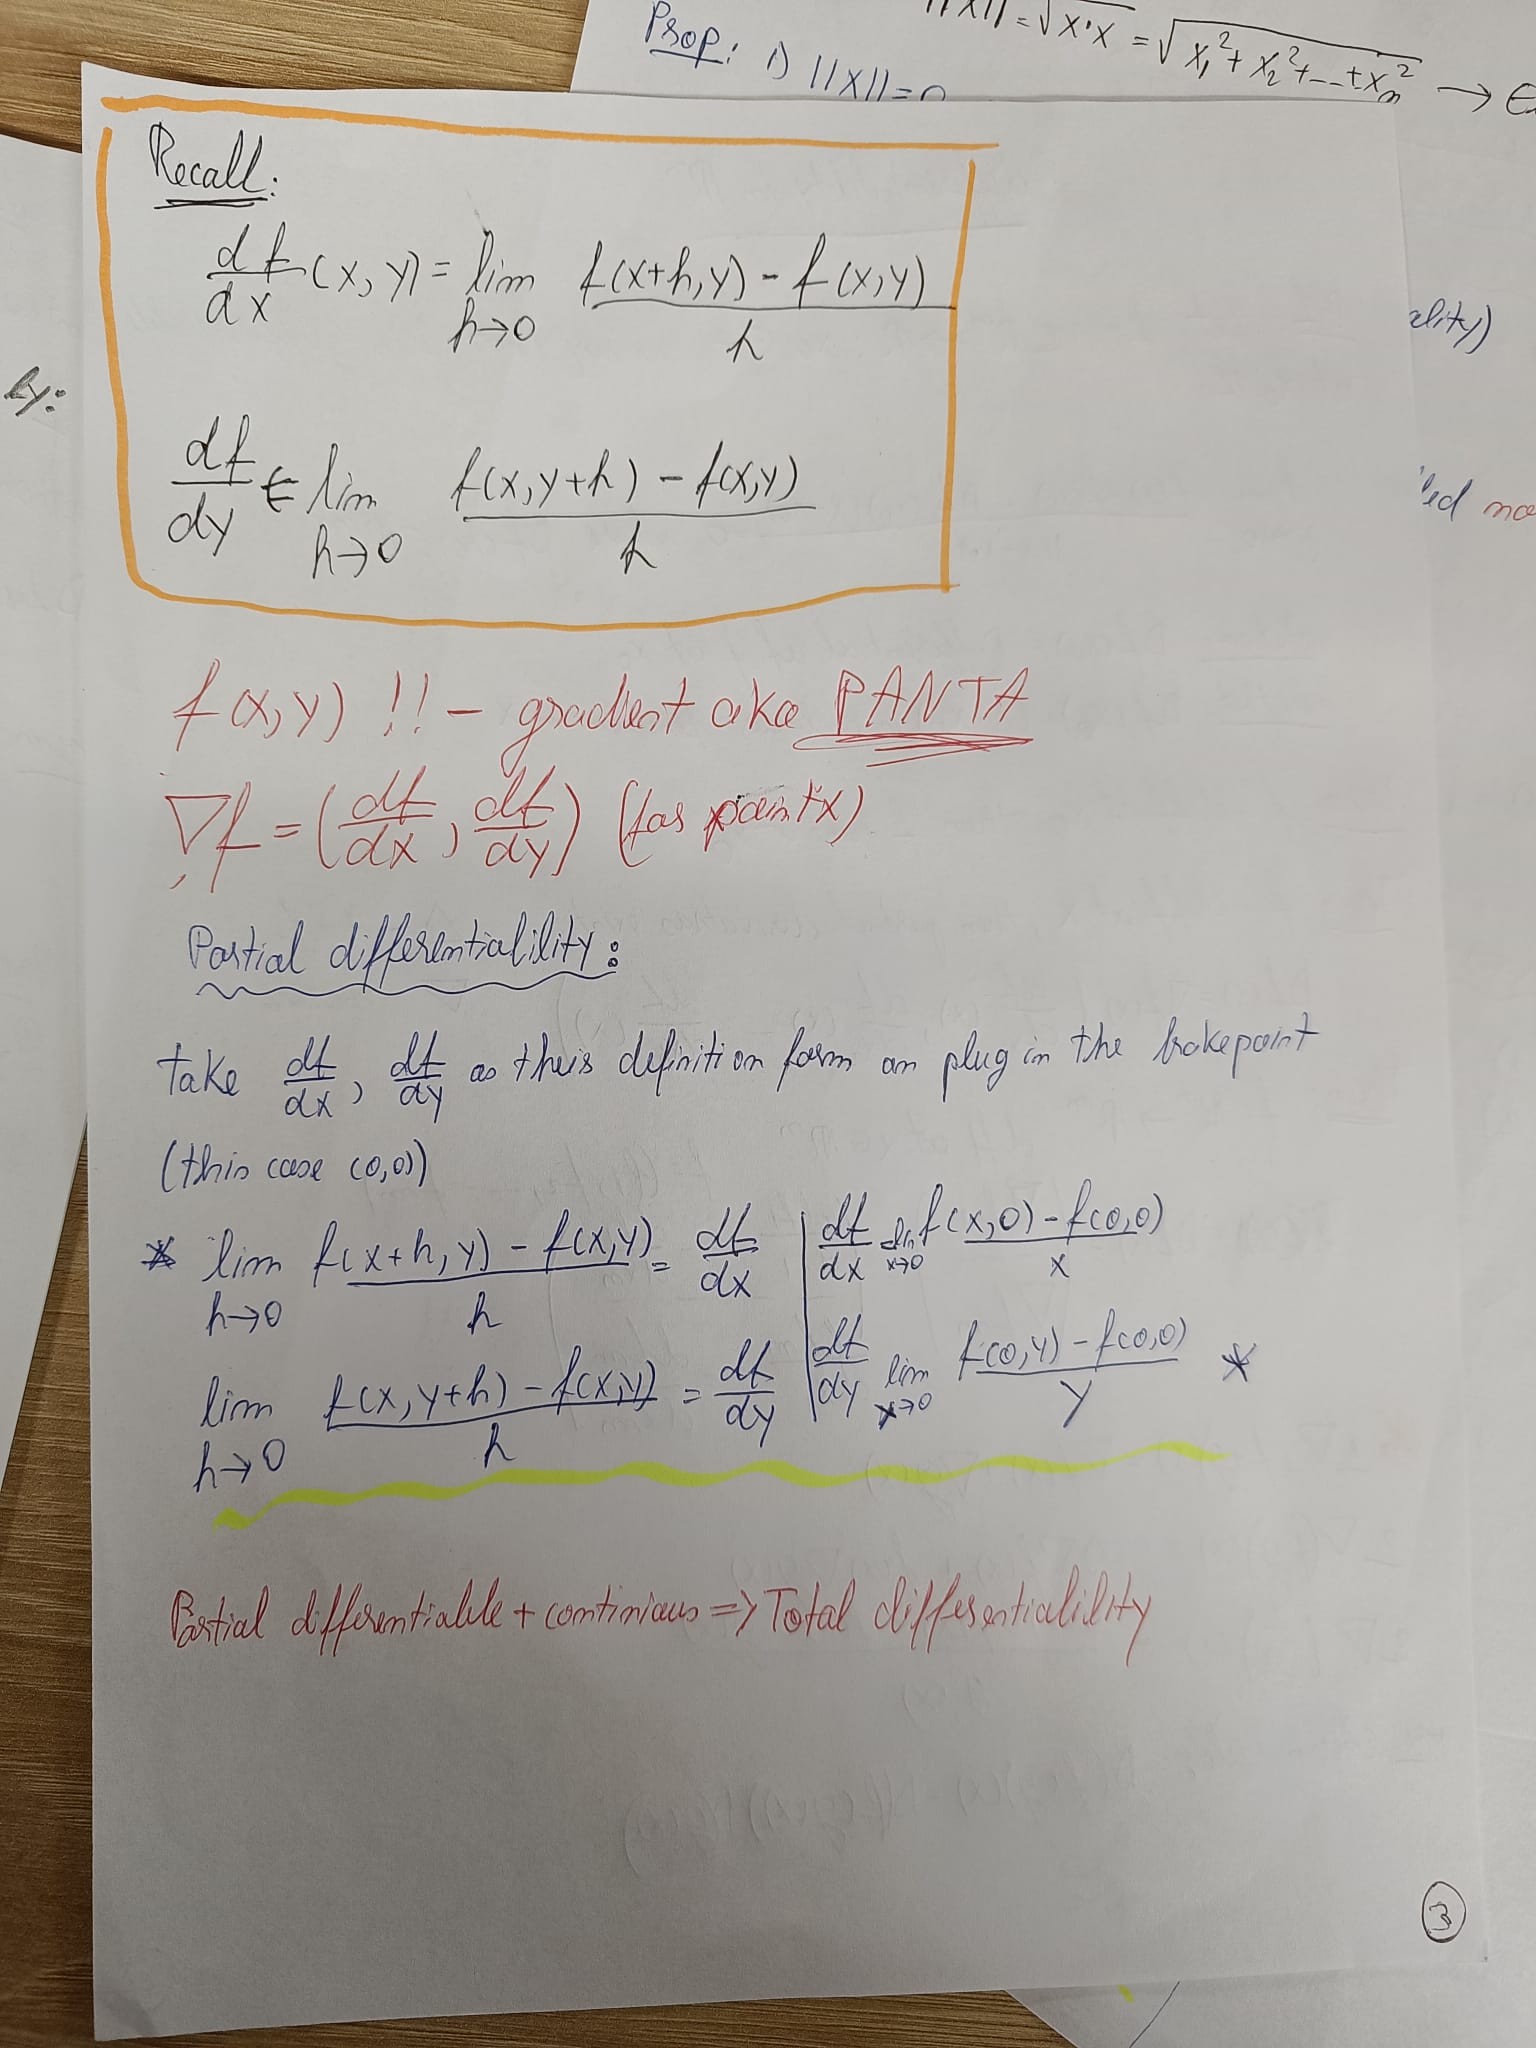 ||x|| = √x·x = √x₁² + x₂² + ... + xₙ² →
Prop: 1) ||x|| = 0
Recall:
df/dx (x, y) = lim h→0 f(x+h, y) - f(x, y) / h
df/dy = lim h→0 f(x, y+h) - f(x, y) / h
f(x, y) !! - gradient aka PANTA
∇f = (df/dx, df/dy) (for point x)
Partial differentiability:
take df/dx, df/dy as their definition form an plug in the brakepoint
(this case (0,0))
* lim h→0 f(x+h, y) - f(x, y) / h = df/dx | df/dx lim x→0 f(x, 0) - f(0, 0) / x
lim h→0 f(x, y+h) - f(x, y) / h = df/dy | df/dy lim y→0 f(0, y) - f(0, 0) / y *
Partial differentiable + continious => Total differentiability
3
ality)